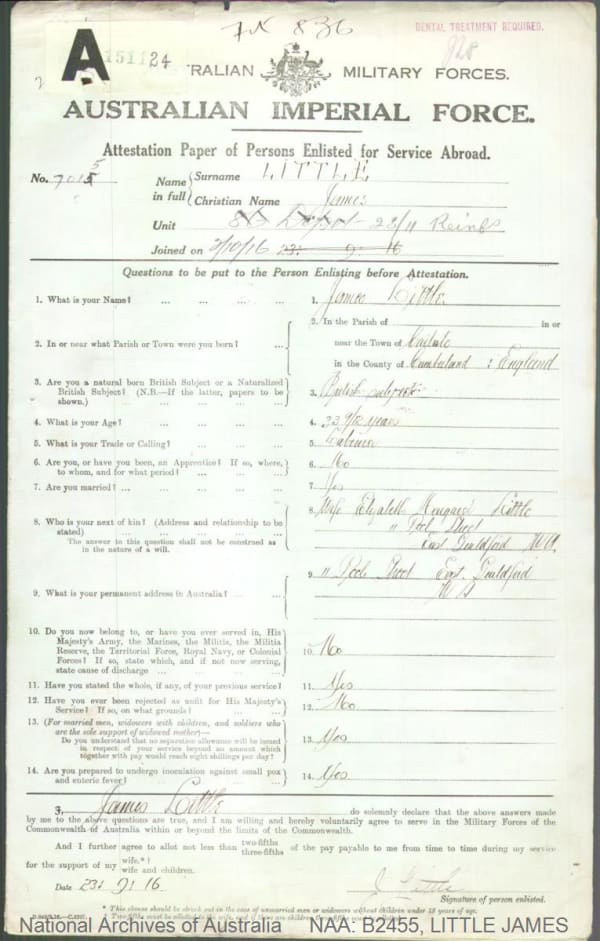 7K 836
DENTAL TREATMENT REQUIRED.
A 151124
TRALIAN MILITARY FORCES.
AUSTRALIAN IMPERIAL FORCE.
Attestation Paper of Persons Enlisted for Service Abroad.
No. 7015 5
Name in full { Surname LITTLE
Christian Name James
Unit Depot 28/11 Reinfs
Joined on 2/10/16 23: 9: 16
Questions to be put to the Person Enlisting before Attestation.
1. What is your Name? ... ... ... ... 1. James Little
2. In or near what Parish or Town were you born? ... 2. In the Parish of in or
near the Town of Carlisle
in the County of Cumberland : England
3. Are you a natural born British Subject or a Naturalized
British Subject? (N.B.—If the latter, papers to be
shown.) ... ... ... ... 3. British subject
4. What is your Age? ... ... ... ... 4. 33 9/12 years
5. What is your Trade or Calling? ... ... ... 5.
6. Are you, or have you been, an Apprentice? If so, where,
to whom, and for what period? ... ... ... 6. No
7. Are you married? ... ... ... ... 7. Yes
8. Who is your next of kin? (Address and relationship to be
stated) ... ... ... ...
The answer to this question shall not be construed as
in the nature of a will.
8. Wife Elizabeth Little
" Street
East Guildford W.A.
9. What is your permanent address in Australia? ... ...
9. " Street East Guildford
W A
10. Do you now belong to, or have you ever served in, His
Majesty's Army, the Marines, the Militia, the Militia
Reserve, the Territorial Force, Royal Navy, or Colonial
Forces? If so, state which, and if not now serving,
state cause of discharge ... ... ... 10. No
11. Have you stated the whole, if any, of your previous service? 11. Yes
12. Have you ever been rejected as unfit for His Majesty's
Service? If so, on what grounds? ... ... 12. No
13. (For married men, widowers with children, and soldiers who
are the sole support of widowed mother)—
Do you understand that no separation allowance will be issued
in respect of your service beyond an amount which
together with pay would reach eight shillings per day? 13. Yes
14. Are you prepared to undergo inoculation against small pox
and enteric fever? ... ... ... ... 14. Yes
I, James Little do solemnly declare that the above answers made
by me to the above questions are true, and I am willing and hereby voluntarily agree to serve in the Military Forces of the
Commonwealth of Australia within or beyond the limits of the Commonwealth.
And I further agree to allot not less than two-fifths three-fifths of the pay payable to me from time to time during my service
for the support of my wife.*† wife and children.
Date 23: 9: 16 J Little
Signature of person enlisted.
* This clause should be struck out in the case of unmarried men or widowers without children under 18 years of age.
National Archives of Australia NAA: B2455, LITTLE JAMES